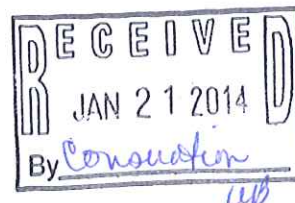 RECEIVED
JAN 21 2014
By Conservation